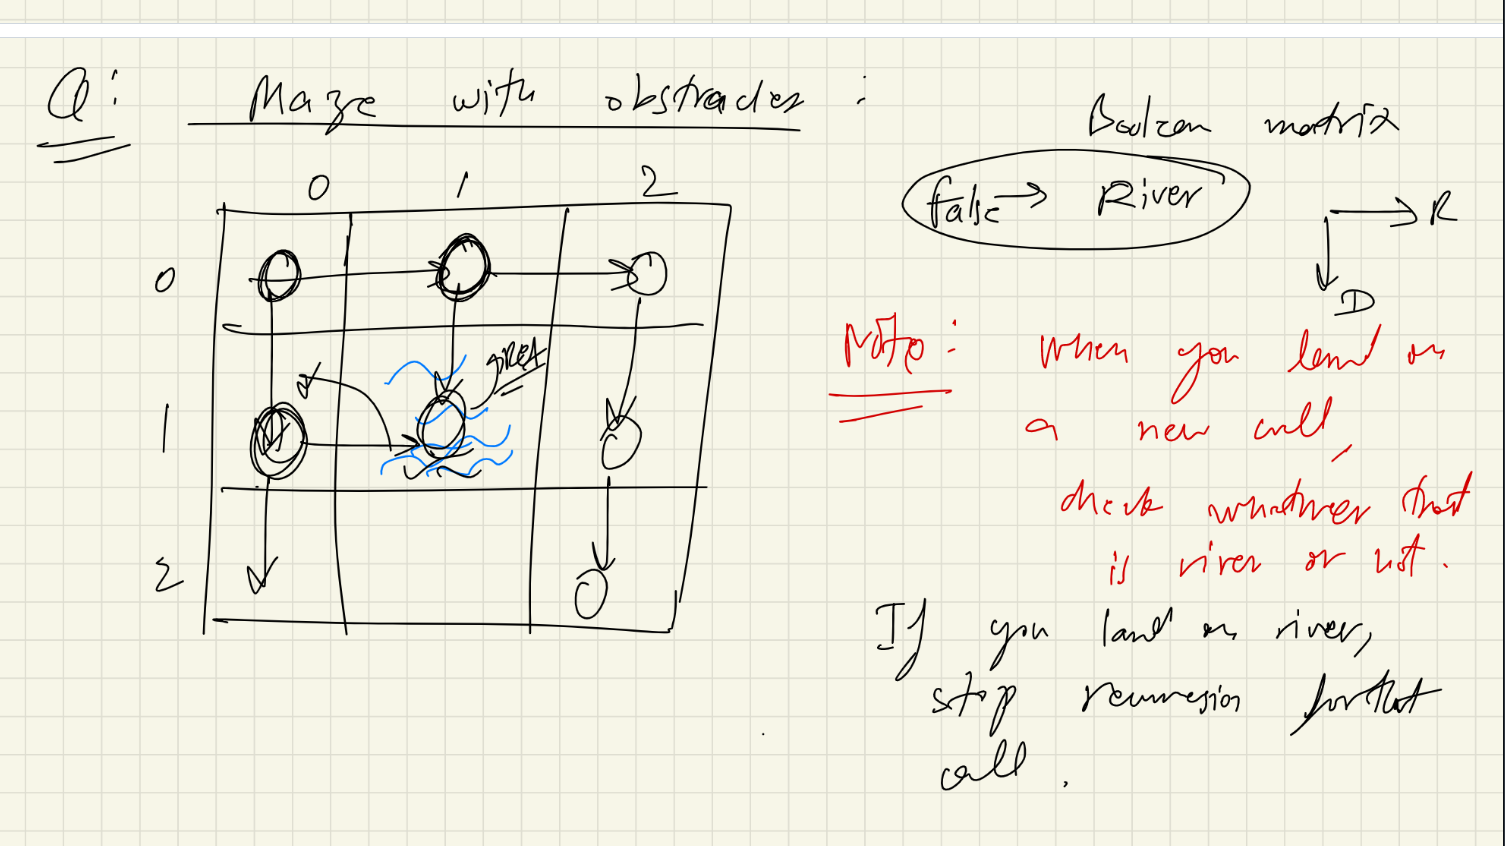 Q: Maze with obstracles :
Boolean matrix
false → River
R
D
0 1 2
0
1
2
Note: When you land on
a new call,
check whatheer that
is river or not.
If you land on river,
stop recurresion for that
call.